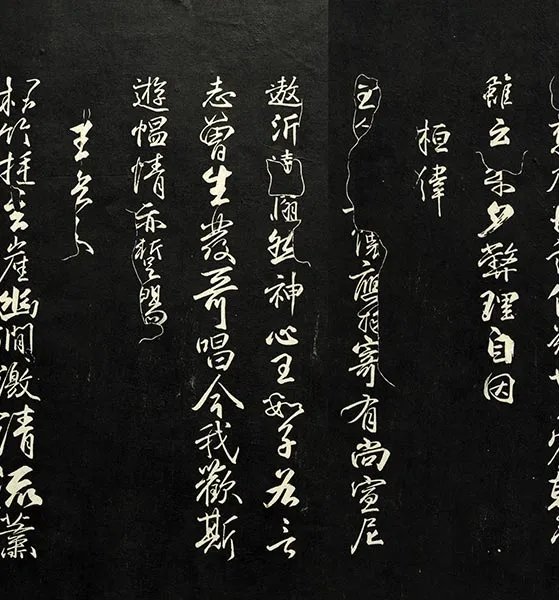 雖云夕弊理自因
桓偉
主人懷應物寄有尚宣尼
遨沂津翛然神心王數子各言
志曾生發奇唱今我歡斯
遊慍情亦暫暢
王玄之
松竹挺巖崖幽澗激清流蕭